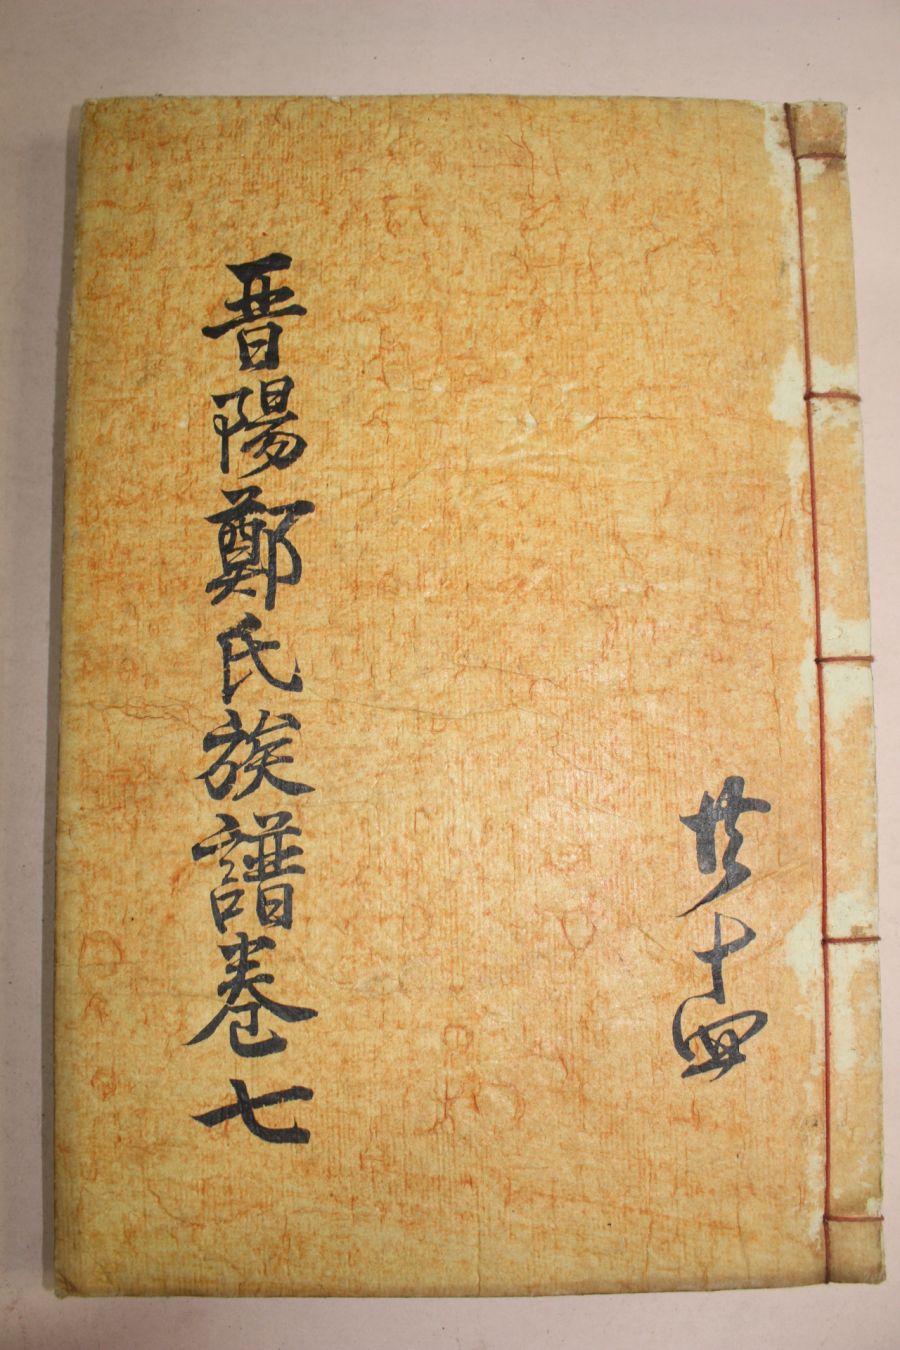 共十四
晋陽鄭氏族譜卷七